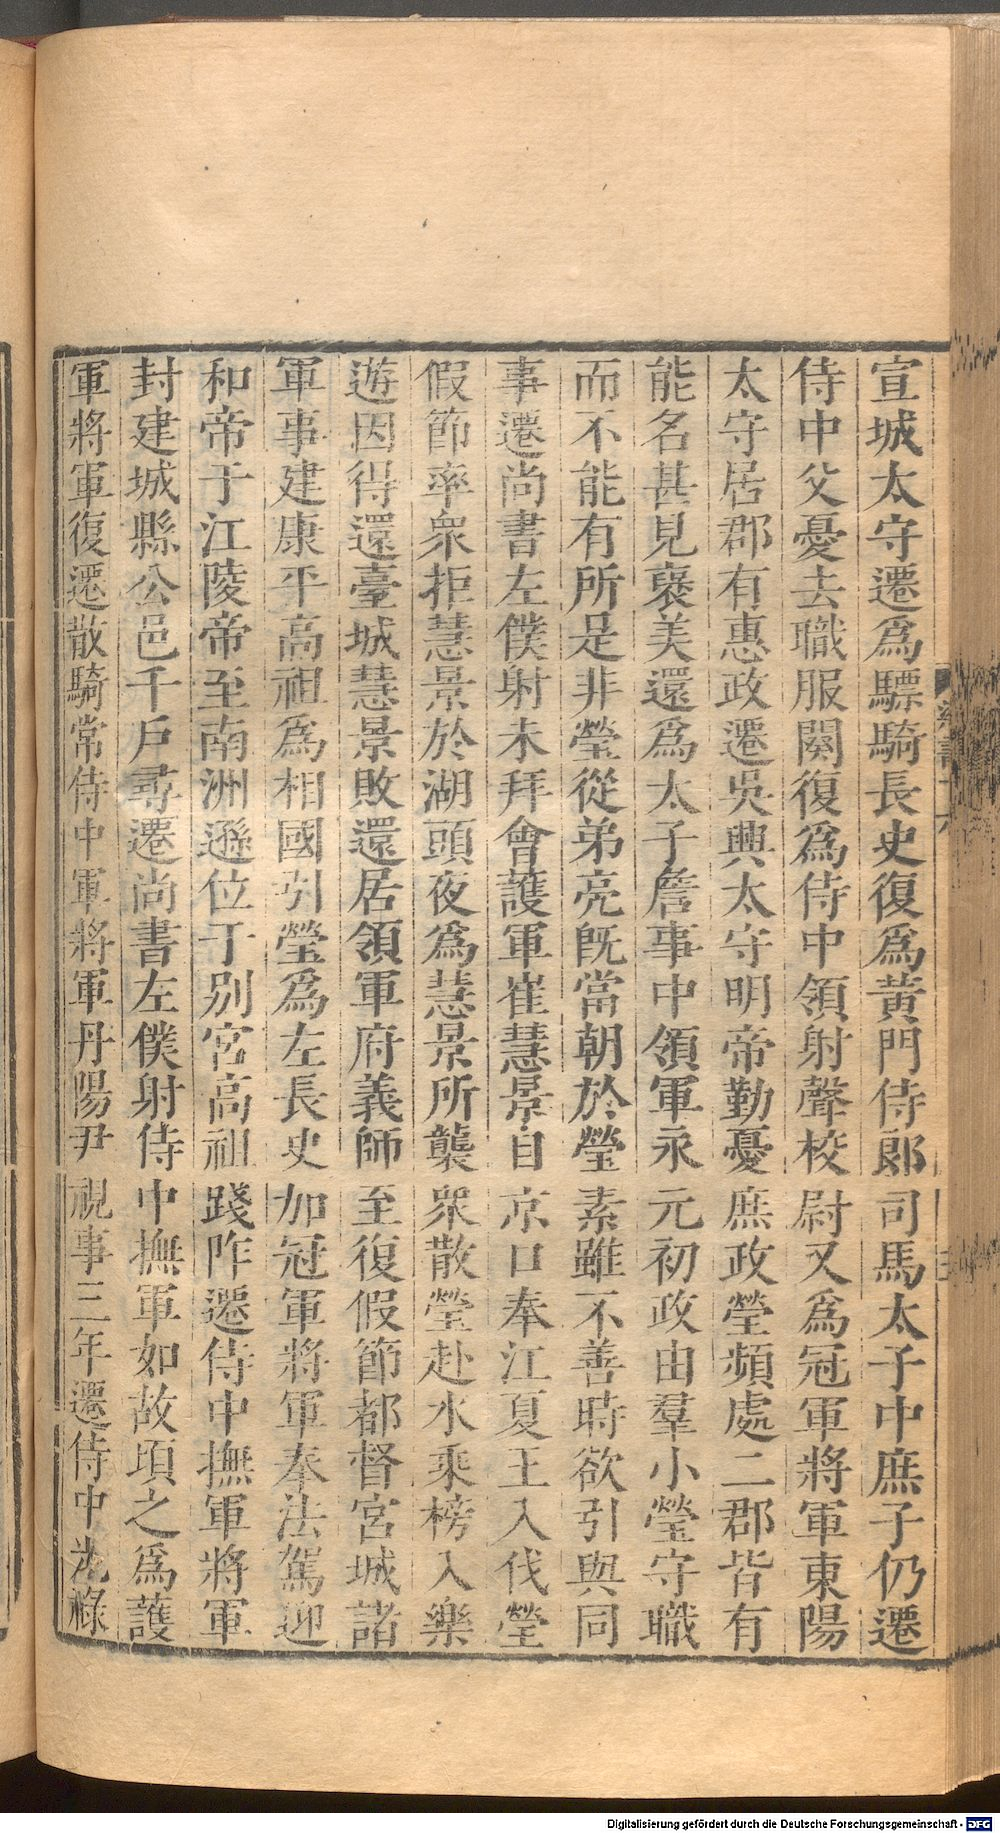 宣城太守遷爲驃騎長史復爲黄門侍郞司馬太子中庶子仍遷
侍中父憂去職服闋復爲侍中領射聲校尉又爲冠軍將軍東陽
太守居郡有惠政遷吳興太守明帝勤憂庶政瑩頻處二郡皆有
能名甚見襃美還爲太子詹事中領軍永元初政由羣小瑩守職
而不能有所是非瑩從弟亮旣當朝於瑩素雖不善時欲引與同
事遷尚書左僕射未拜會護軍崔慧景自京口奉江夏王入伐瑩
假節率衆拒慧景於湖頭夜爲慧景所襲衆散瑩赴水乘榜入樂
遊因得還臺城慧景敗還居領軍府義師至復假節都督宮城諸
軍事建康平高祖爲相國引瑩爲左長史加冠軍將軍奉法駕迎
和帝于江陵帝至南洲遜位于别宮高祖踐阼遷侍中撫軍將軍
封建城縣公邑千戶尋遷尚書左僕射侍中撫軍如故頃之爲護
軍將軍復遷散騎常侍中軍將軍丹陽尹視事三年遷侍中光祿
Digitalisierung gefördert durch die Deutsche Forschungsgemeinschaft - DFG